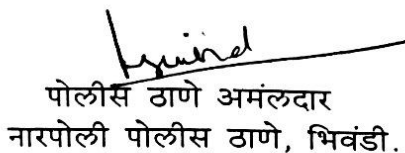 पोलीस ठाणे अमंलदार
नारपोली पोलीस ठाणे, भिवंडी.